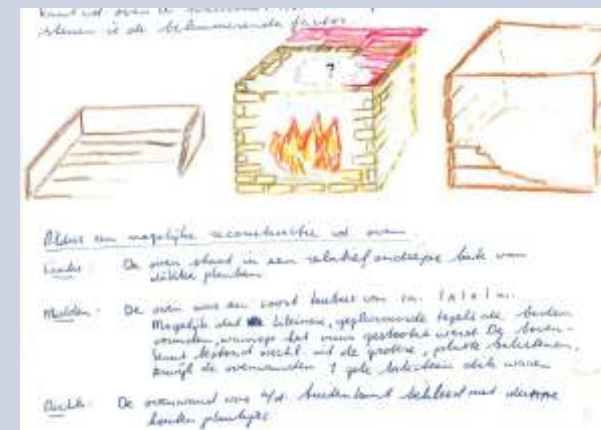 stenen is de belemmerende factor.
?
Aldus een mogelijke reconstructie vd oven.
Links: De oven stond in een relatief ondiepe bak van
dikke planken
Midden: De oven was een soort kubus van ca. 1x1x1 m.
Mogelijk dat kleinere, geglazuurde tegels de bodem
vormden, waarop het vuur gestookt werd. De boven-
kant bestond wellicht uit de grotere, platte bakstenen,
terwijl de ovenwanden 1 gele baksteen dik waren
Rechts: De ovenwand was a/d buitenkant bekleed met dunne
houten plankjes.